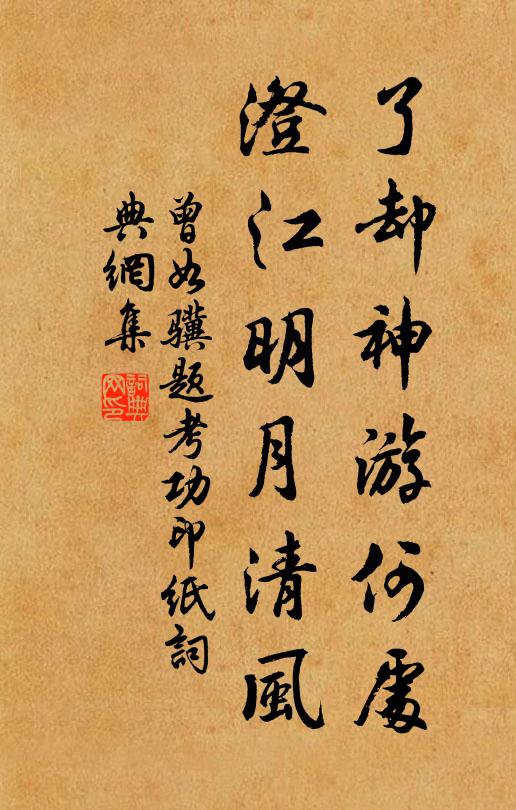 了却神游何處
澄江明月清風
曾如骥题考功印紙詞
典網集
詞典
网印